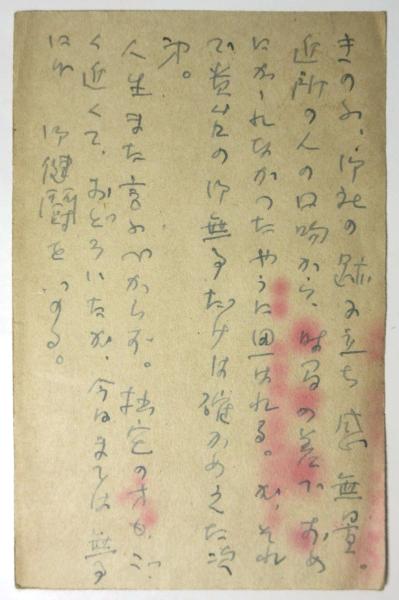 きのふ、御社の跡に立ち感無量。
近所の人の口吻から、時局の差でおめ
にかゝれなかつたやうに思はれる。が、それ
で貴台の御無事だけは確かめえた次
第。
人生また言ふべからず。拙宅の方も、ご
く近くて、おどろいたが、今日までは無事
御健闘を